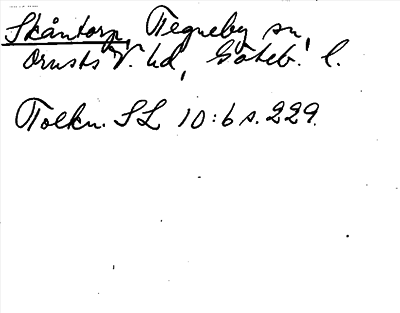 Skåntorp, Tegneby sn,
Orusts V. hd, Göteb. l.
Tolkn. SL 10:6 s. 229.